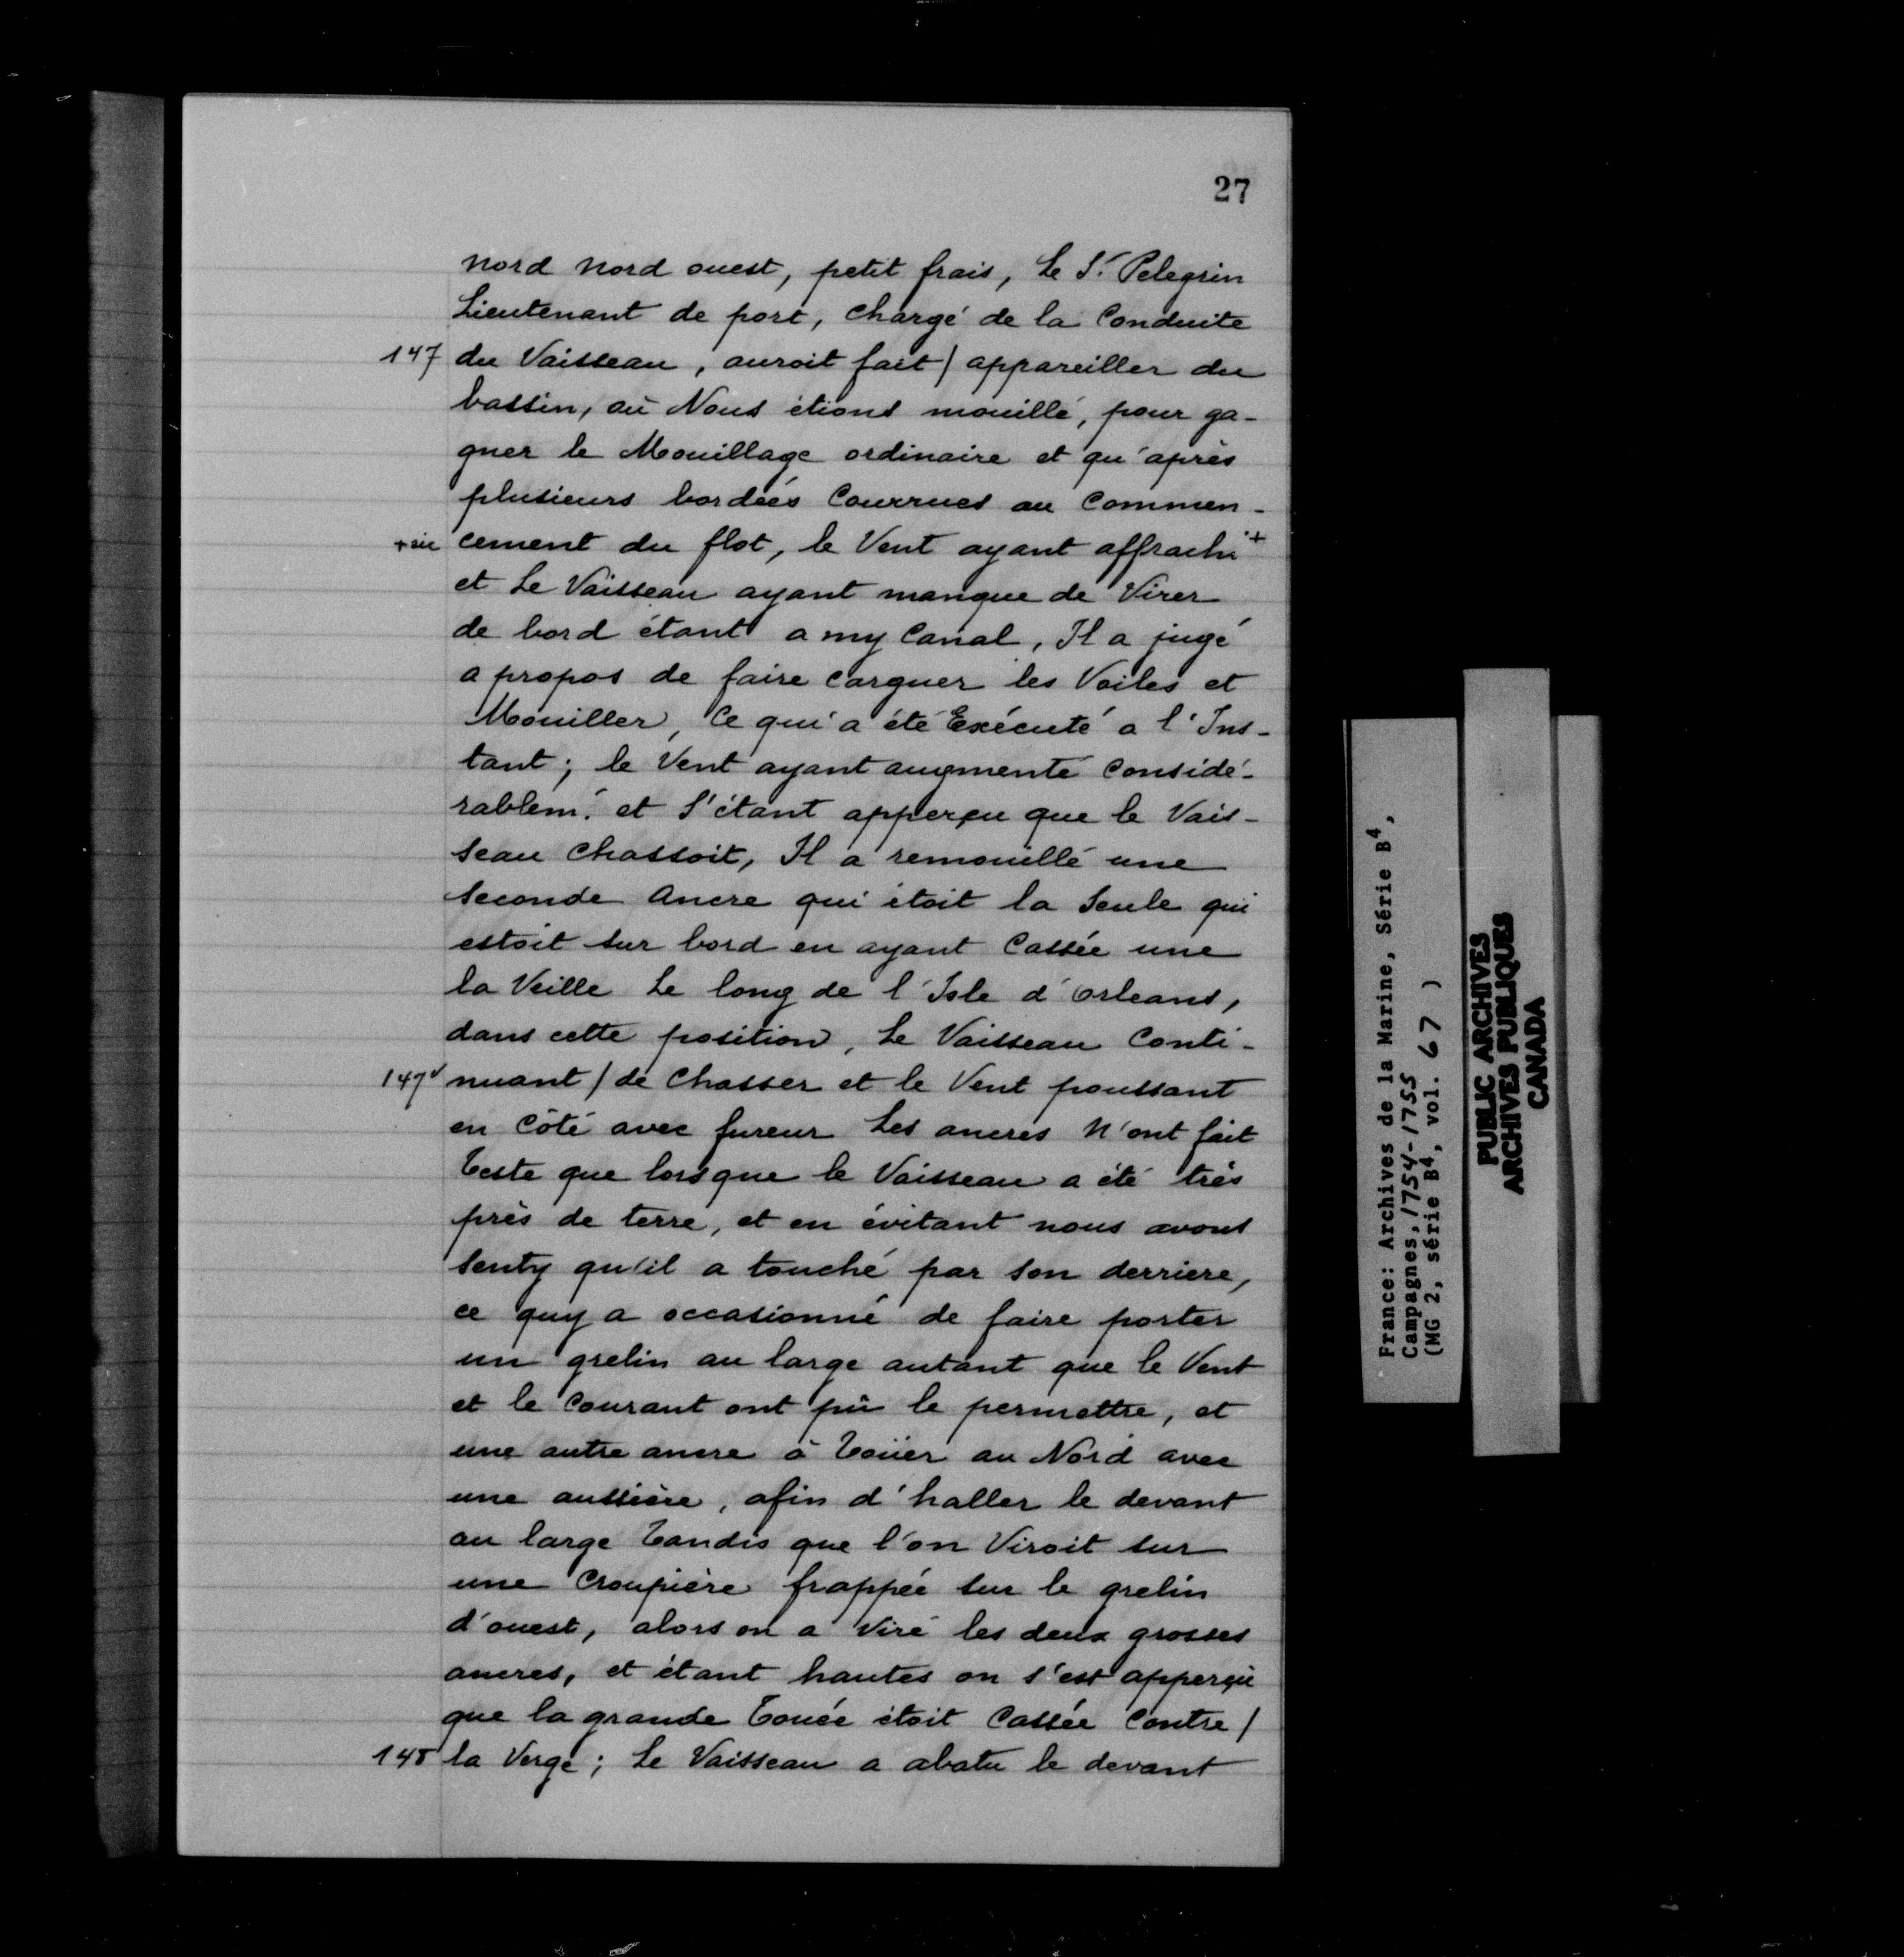 27
nord nord ouest, petit frais, Le Sr. Pelegrin
Lieutenant de port, chargé de la Conduite
147 du Vaisseau, auroit fait / appareiller du
bassin, où Nous étions mouillé, pour ga-
gner le Mouillage ordinaire et qu'après
plusieurs bordées Courrues au Commen-
+ sic cement du flot, le Vent ayant affrachi +
et Le Vaisseau ayant manque de Virer
de bord étant a my Canal, Il a jugé
a propos de faire carguer les Voiles et
Mouiller, Ce qui a été Exécuté a l'Ins-
tant; le Vent ayant augmenté Considé-
rablemt. et S'étant apperçu que le Vais-
seau Chassoit, Il a remouillé une
Seconde Ancre qui étoit la Seule qui
estoit sur bord en ayant Cassée une
la Veille Le long de l'Isle d'Orleans,
dans cette position, Le Vaisseau Conti-
147v nuant / de Chasser et le Vent poussant
en Côté avec fureur Les ancres N'ont fait
Teste que lorsque le Vaisseau a été très
près de terre, et en évitant nous avons
senty qu'il a touché par son derriere,
ce quy a occasionné de faire porter
un grelin au large autant que le Vent
et le Courant ont pû le permettre, et
une autre ancre à Toüer au Nord avec
une aussière, afin d'haller le devant
au large Tandis que l'on Viroit sur
une Croupière frappée sur le grelin
d'ouest, alors on a Viré les deux grosses
ancres, et étant hautes on s'est apperçu
que la grande Touée étoit Cassée Contre /
148 la Verge; Le Vaisseau a abatu le devant
France: Archives de la Marine, Série B4,
Campagnes, 1754-1755
(MG 2, série B4, vol. 67 )
PUBLIC ARCHIVES
ARCHIVES PUBLIQUES
CANADA